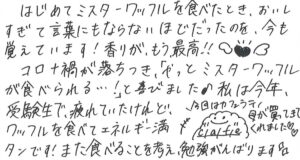 はじめてミスターワッフルを食べたとき、おいし
すぎて言葉にもならないほどだったのを、今も
覚えています！香りが、もう最高!!
コロナ禍が落ちつき、「やっとミスターワッフル
が食べられる…」と喜びました♪私は今年、
受験生で、疲れていたけれど、
ワッフルを食べてエネルギー満
タンです！また食べることを考え、勉強がんばります
今日はカフェラテ
母が買ってきて
くれました